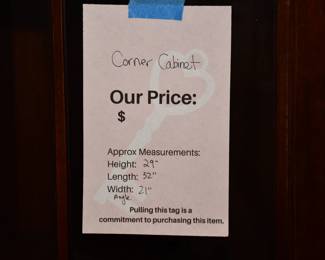 Corner Cabinet
Our Price:
$
Approx Measurements:
Height: 29"
Length: 52"
Width: 21"
Angle
Pulling this tag is a
commitment to purchasing this item.